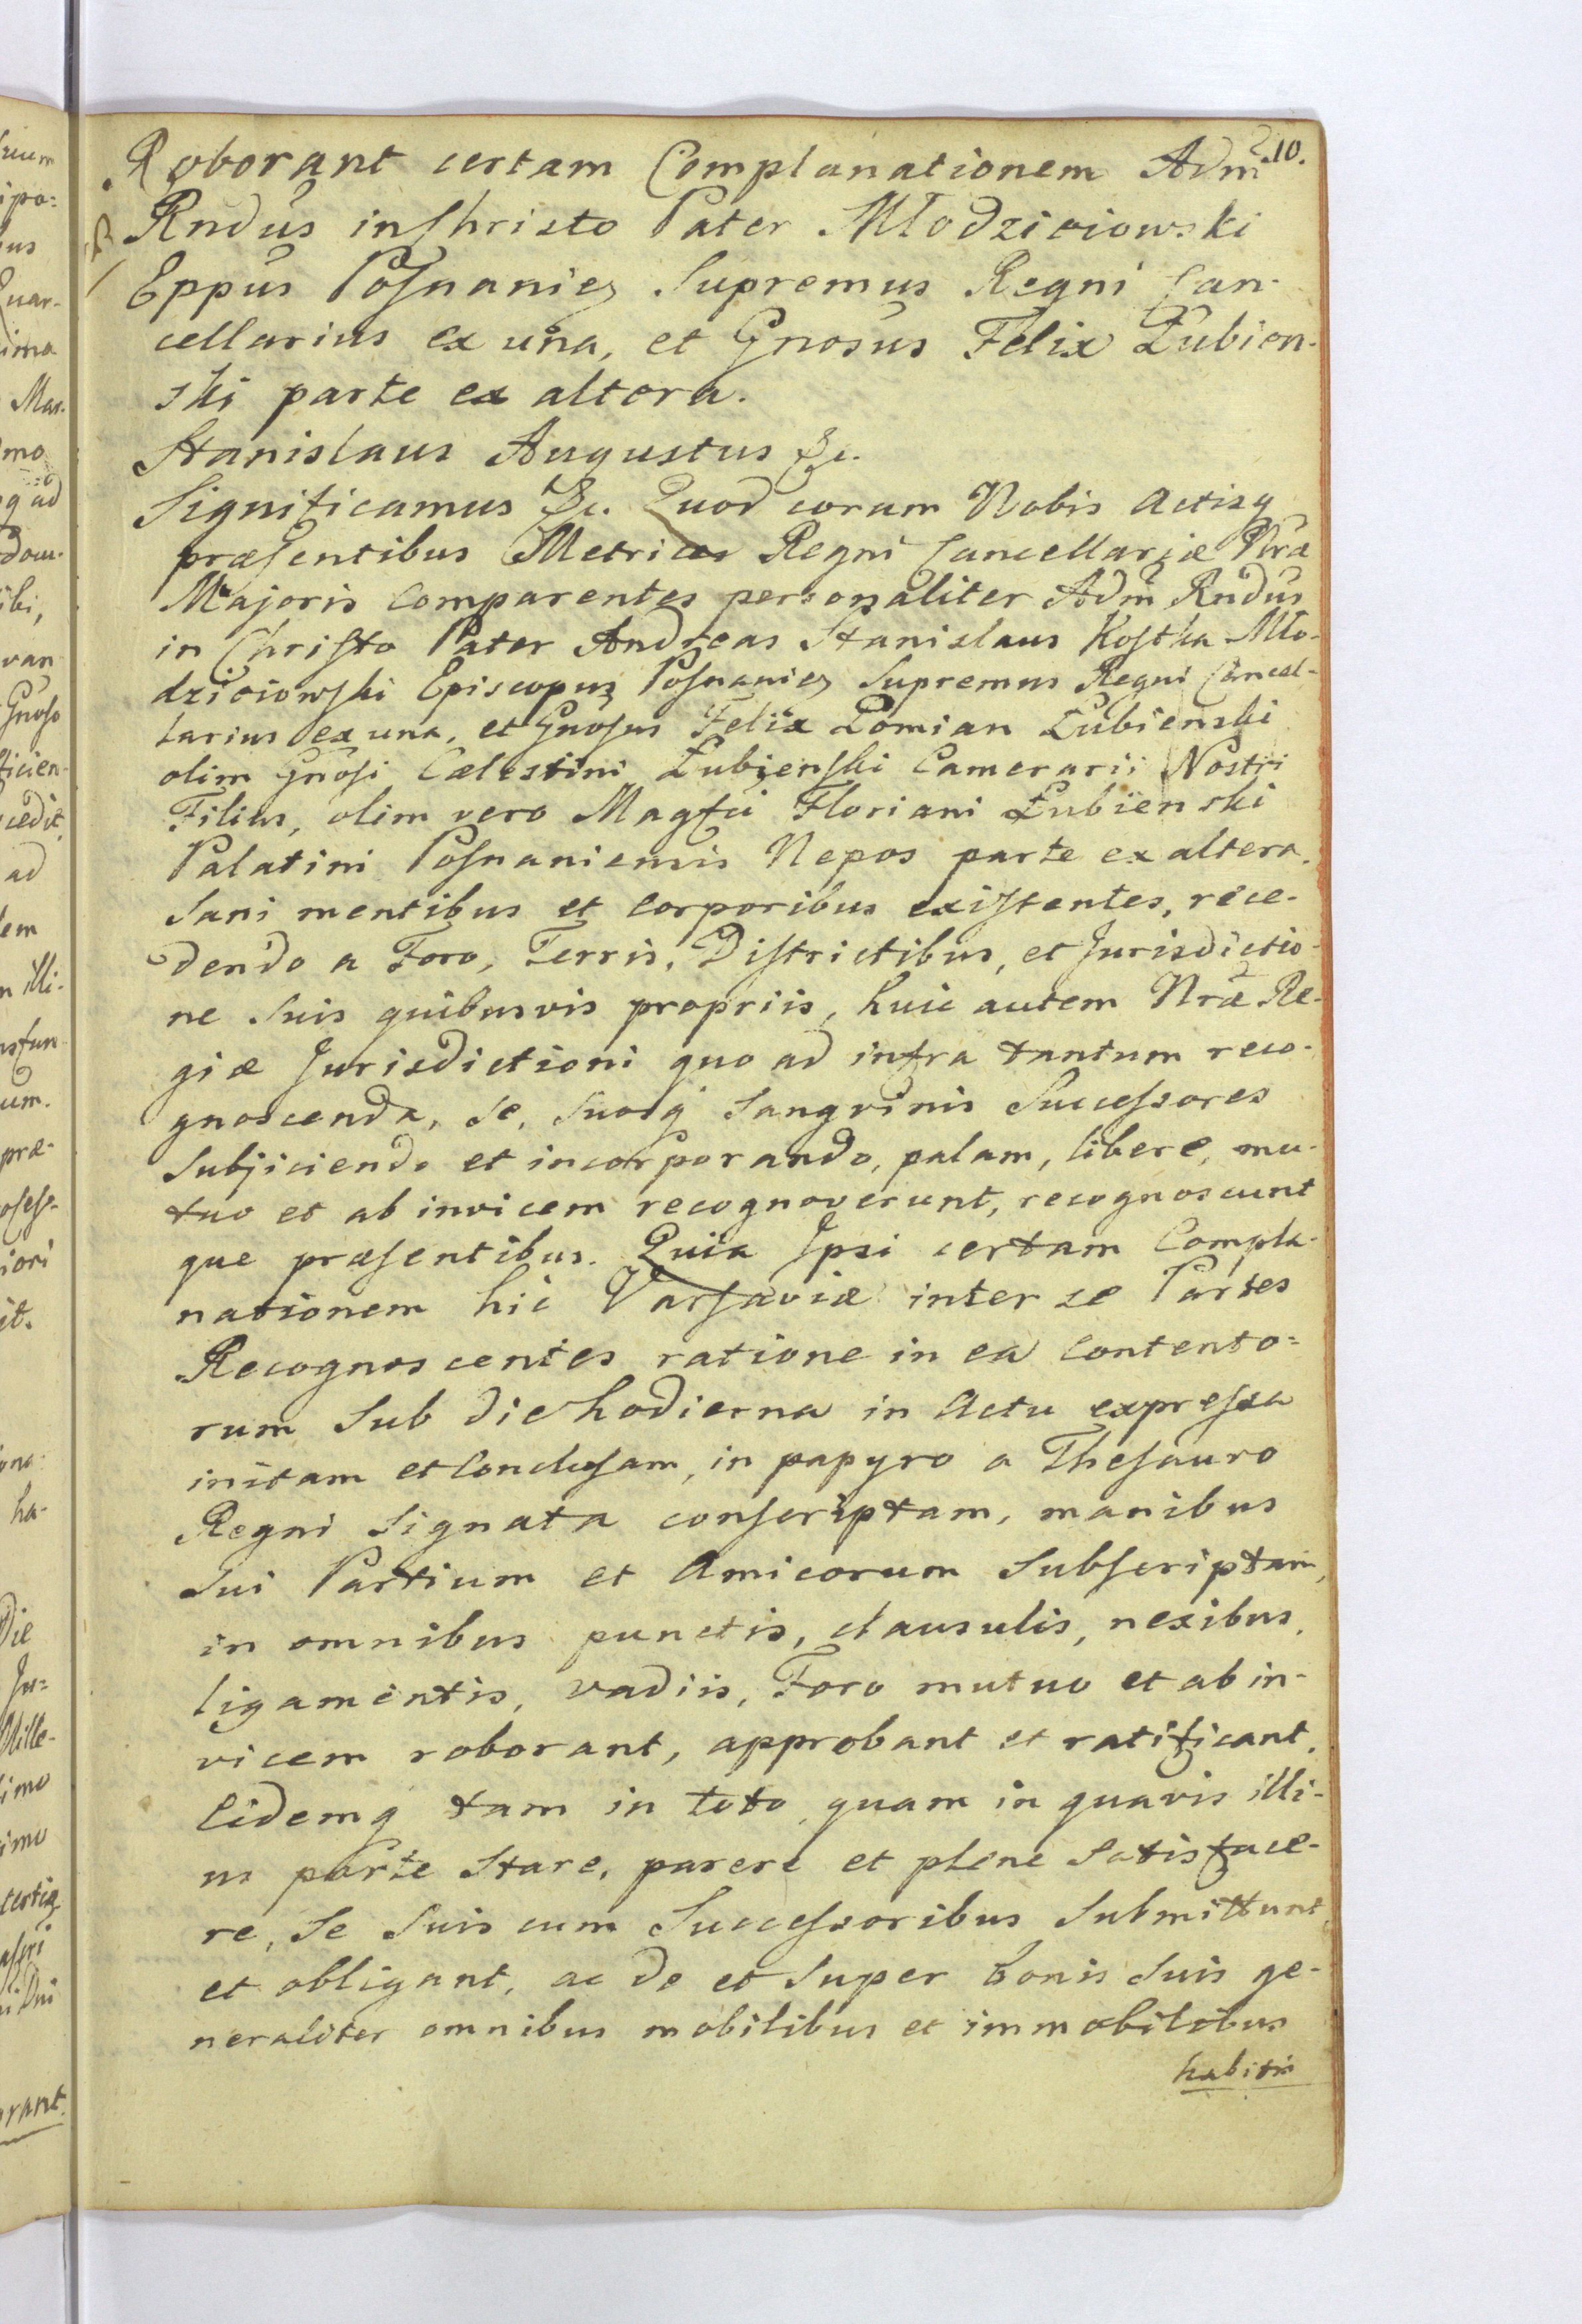 10.
Roborant certam Complanationem Adm̃
Rndus in Christo Pater Młodzieiowski
Eppus Posnanies Supremus Regni Can-
cellarius ex una, et Gnosus Felix Łubien-
ski parte ex altera.
Stanislaus Augustus &c.
Significamus &c. Quod coram Nobis Actisq
præsentibus Metrices Regni Cancellariæ Nræ
Majoris Comparentes personaliter Adm̃ Rndus
in Christo Pater Andreas Stanislaus Kostka Mło-
dzieiowski Episcopus Posnanies Supremus Regni Cancel-
larius ex una, et Gnosus Felix Pomian Łubienski
olim Gnosi Cælestini Łubienski Camerarii Nostri
Filius, olim vero Magfci Floriani Łubienski
Palatini Posnaniensis Nepos parte ex altera.
Sani mentibus et corporibus existentes, rece-
dendo a Foro, Terris, Districtibus, et Jurisdictio-
ne Suis quibusvis propriis, huic autem Nræ Re-
giæ Jurisdictioni quo ad infra tantum reco-
gnoscenda, se, Suosq Sangvinis Successores
Subjiciendo et incorporando, palam, libere, mu-
tuo et ab invicem recognoverunt, recognoscunt
que præsentibus. Quia Ipsi certam Compla-
nationem hic Varsaviæ inter se Partes
Recognoscentes ratione in ea contento=
rum Sub die hodierna in Actu expressa
initam et Conclusam, in papyro a Thesauro
Regni Signata conscriptam, manibus
Sui Partium et Amicorum Subscriptam,
in omnibus punctis, clausulis, nexibus,
ligamentis, vadiis, Foro mutuo et ab in-
vicem roborant, approbant et ratificant.
Eidemq tam in toto, quam in quavis illi-
us parte Stare, parere et plene Satisface-
re, Se Suis cum Successoribus Submittunt,
et obligant, ac de et Super bonis Suis ge-
neraliter omnibus mobilibus et immobilibus
habitis